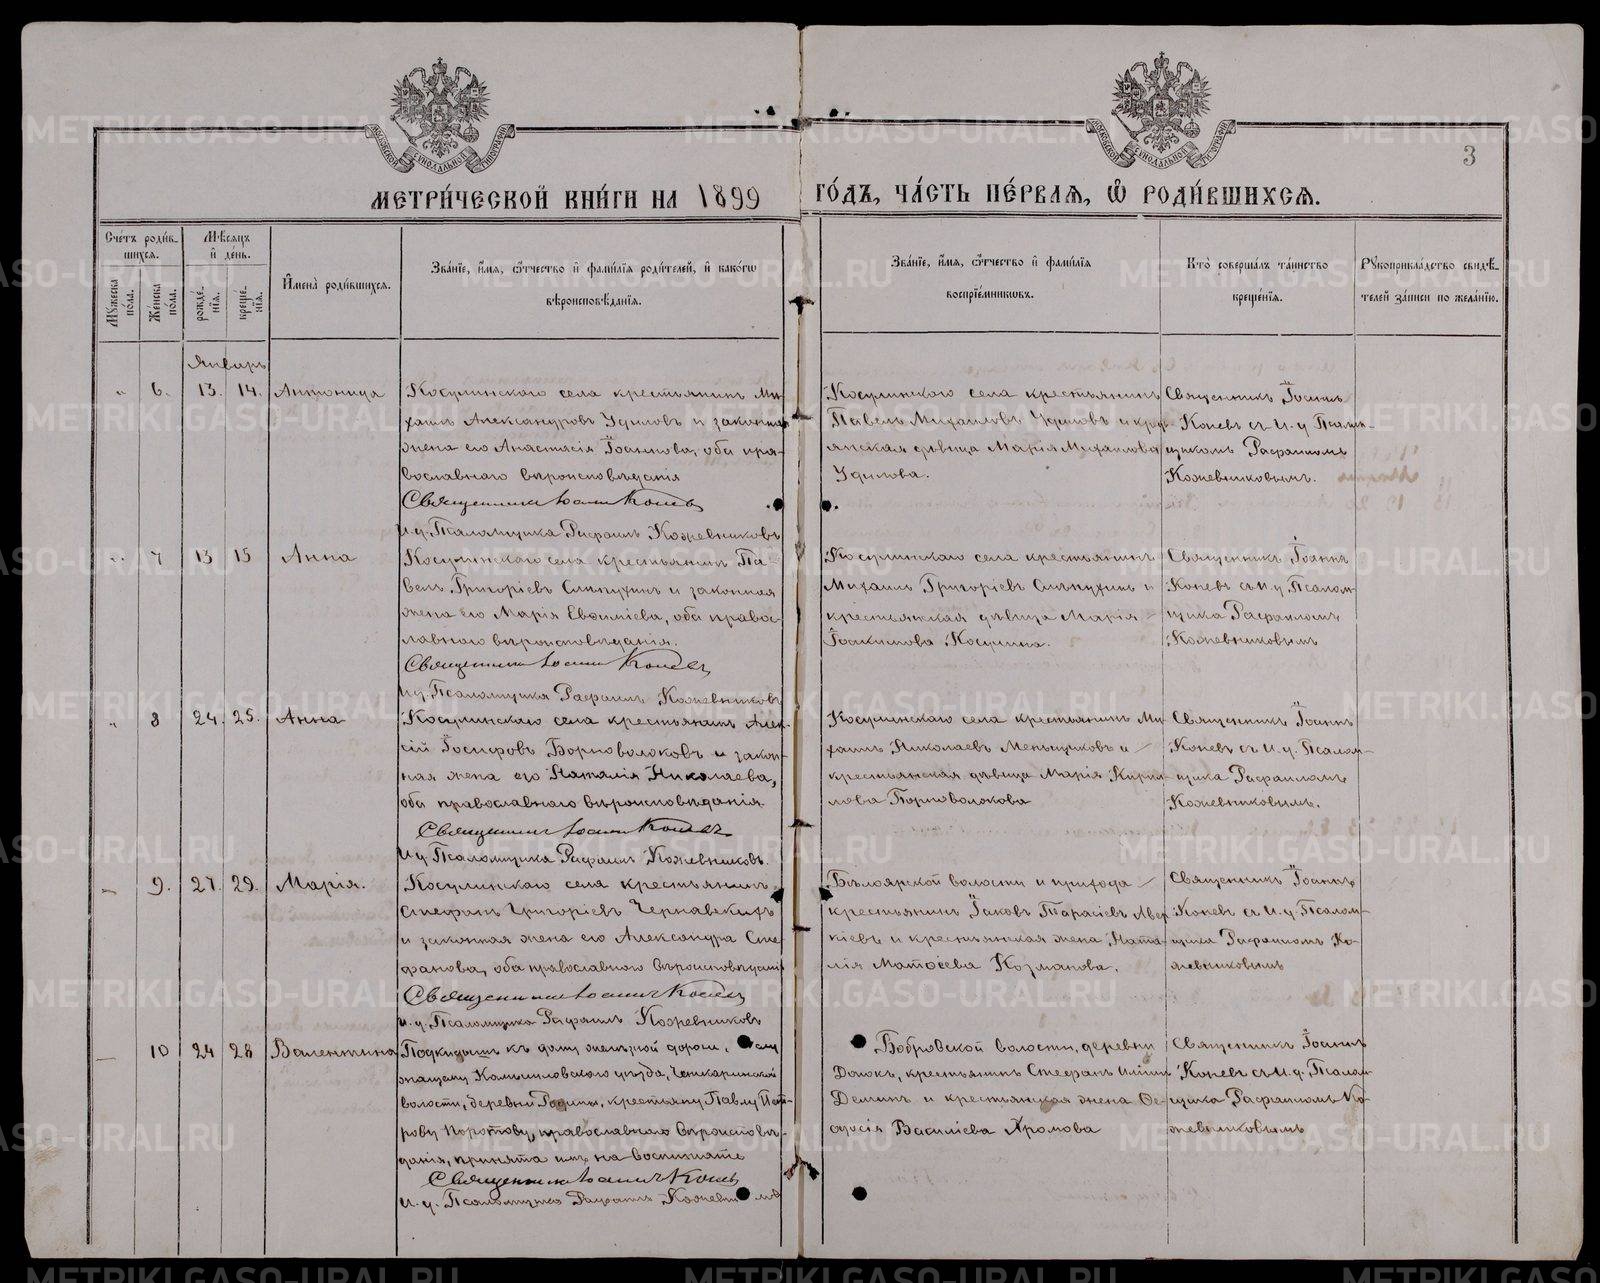 МОСКОВСКОЙ СИНОДАЛЬНОЙ ТИПОГРАФІИ
МОСКОВСКОЙ СИНОДАЛЬНОЙ ТИПОГРАФІИ
3
МЕТРИ́ЧЕСКОЙ КНИ́ГИ НА 1899 ГО́ДЪ, ЧА́СТЬ ПЕ́РВАѦ, Ѡ҆ РОДИ́ВШИХСѦ.
Сче́тъ роди́в-
шихся.
Мꙋ́жеска по́ла.
Же́нска по́ла.
Мѣ́сяцъ
и҆ де́нь.
рожде́-нїѧ.
креще́-нїѧ.
И҆мена̀ роди́вшихся.
Зва́нїе, и҆́мя, ѻ҆́тчество и҆ фами́лїѧ роди́телей, и҆ како́гѡ
вѣроисповѣ́данїѧ.
Зва́нїе, и҆́мя, ѻ҆́тчество и҆ фами́лїѧ
воспрїе́мниковъ.
Кто̀ соверша́лъ та́инство
креще́нїѧ.
Рꙋкоприкла́дство свидѣ́-
телей за́писи по жела́нїю.
Январь
„ 6. 13. 14. Антонида
Косулинскаго села крестьянинъ Ми-
хаилъ Александровъ Удиловъ и законная
жена его Анастасія Іоаннова, оба пра-
вославнаго вѣроисповѣданія
Священникъ Іоаннъ Коневъ
И.д. Псаломщика Рафаилъ Кожевниковъ
Косулинскаго села крестьянинъ
Павелъ Михаиловъ Удиловъ и кресть-
янская дѣвица Марія Михаилова
Удилова.
Священникъ Іоаннъ
Коневъ съ И. д. Псалом-
щикомъ Рафаиломъ
Кожевниковымъ.
„ 7 13 15 Анна
Косулинскаго села крестьянинъ Па-
велъ Григоріевъ Слѣпухинъ и законная
жена его Марія Евѳиміева, оба право-
славнаго вѣроисповѣданія.
Священникъ Іоаннъ Коневъ
И.д. Псаломщика Рафаилъ Кожевниковъ
Косулинскаго села крестьянинъ
Михаилъ Григоріевъ Слѣпухинъ и
крестьянская дѣвица Марія
Іоакимова Косулина.
Священникъ Іоаннъ
Коневъ съ И. д. Псалом-
щика Рафаиломъ
Кожевниковымъ
„ 8 24. 25. Анна
Косулинскаго села крестьянинъ Алек-
сій Іосифовъ Борноволоковъ и закон-
ная жена его Наталія Николаева,
оба православнаго вѣроисповѣданія.
Священникъ Іоаннъ Коневъ
И.д. Псаломщика Рафаилъ Кожевниковъ.
Косулинскаго села крестьянинъ Ми-
хаилъ Николаевъ Меньщиковъ и
крестьянская дѣвица Марія Кирил-
лова Борноволокова
Священникъ Іоаннъ
Коневъ съ И. д. Псалом-
щика Рафаиломъ
Кожевниковымъ.
— 9. 27. 29. Марія.
Косулинскаго села крестьянинъ
Стефанъ Григоріевъ Чернавскихъ
и законная жена его Александра Сте-
фанова, оба православнаго вѣроисповѣданія
Священникъ Іоаннъ Коневъ
И.д. Псаломщика Рафаилъ Кожевниковъ
Бѣлоярской волости и прихода
крестьянинъ Іаковъ Тарасіевъ Авер-
кіевъ и крестьянская жена Ната-
лія Матѳеева Козманова.
Священникъ Іоаннъ
Коневъ съ И. д. Псалом-
щика Рафаиломъ Ко-
жевниковымъ
— 10 24 28 Валентина
Подкидышъ къ дому желѣзной дороги,
Камышловскаго уѣзда,
волости, деревни крестьяну Павлу Пет-
рову православнаго вѣроисповѣ-
данія, принята имъ на воспитаніе
Священникъ Іоаннъ Коневъ
И. д. Псаломщика Рафаилъ Кожевниковъ
Бобровской волости, деревни
крестьянинъ Стефанъ
Деминъ и крестьянская жена Ѳе-
одосія Василіева Хромова
Священникъ Іоаннъ
Коневъ съ И. д. Псалом-
щика Рафаиломъ Ко-
жевниковымъ
METRIKI.GASO-URAL.RU